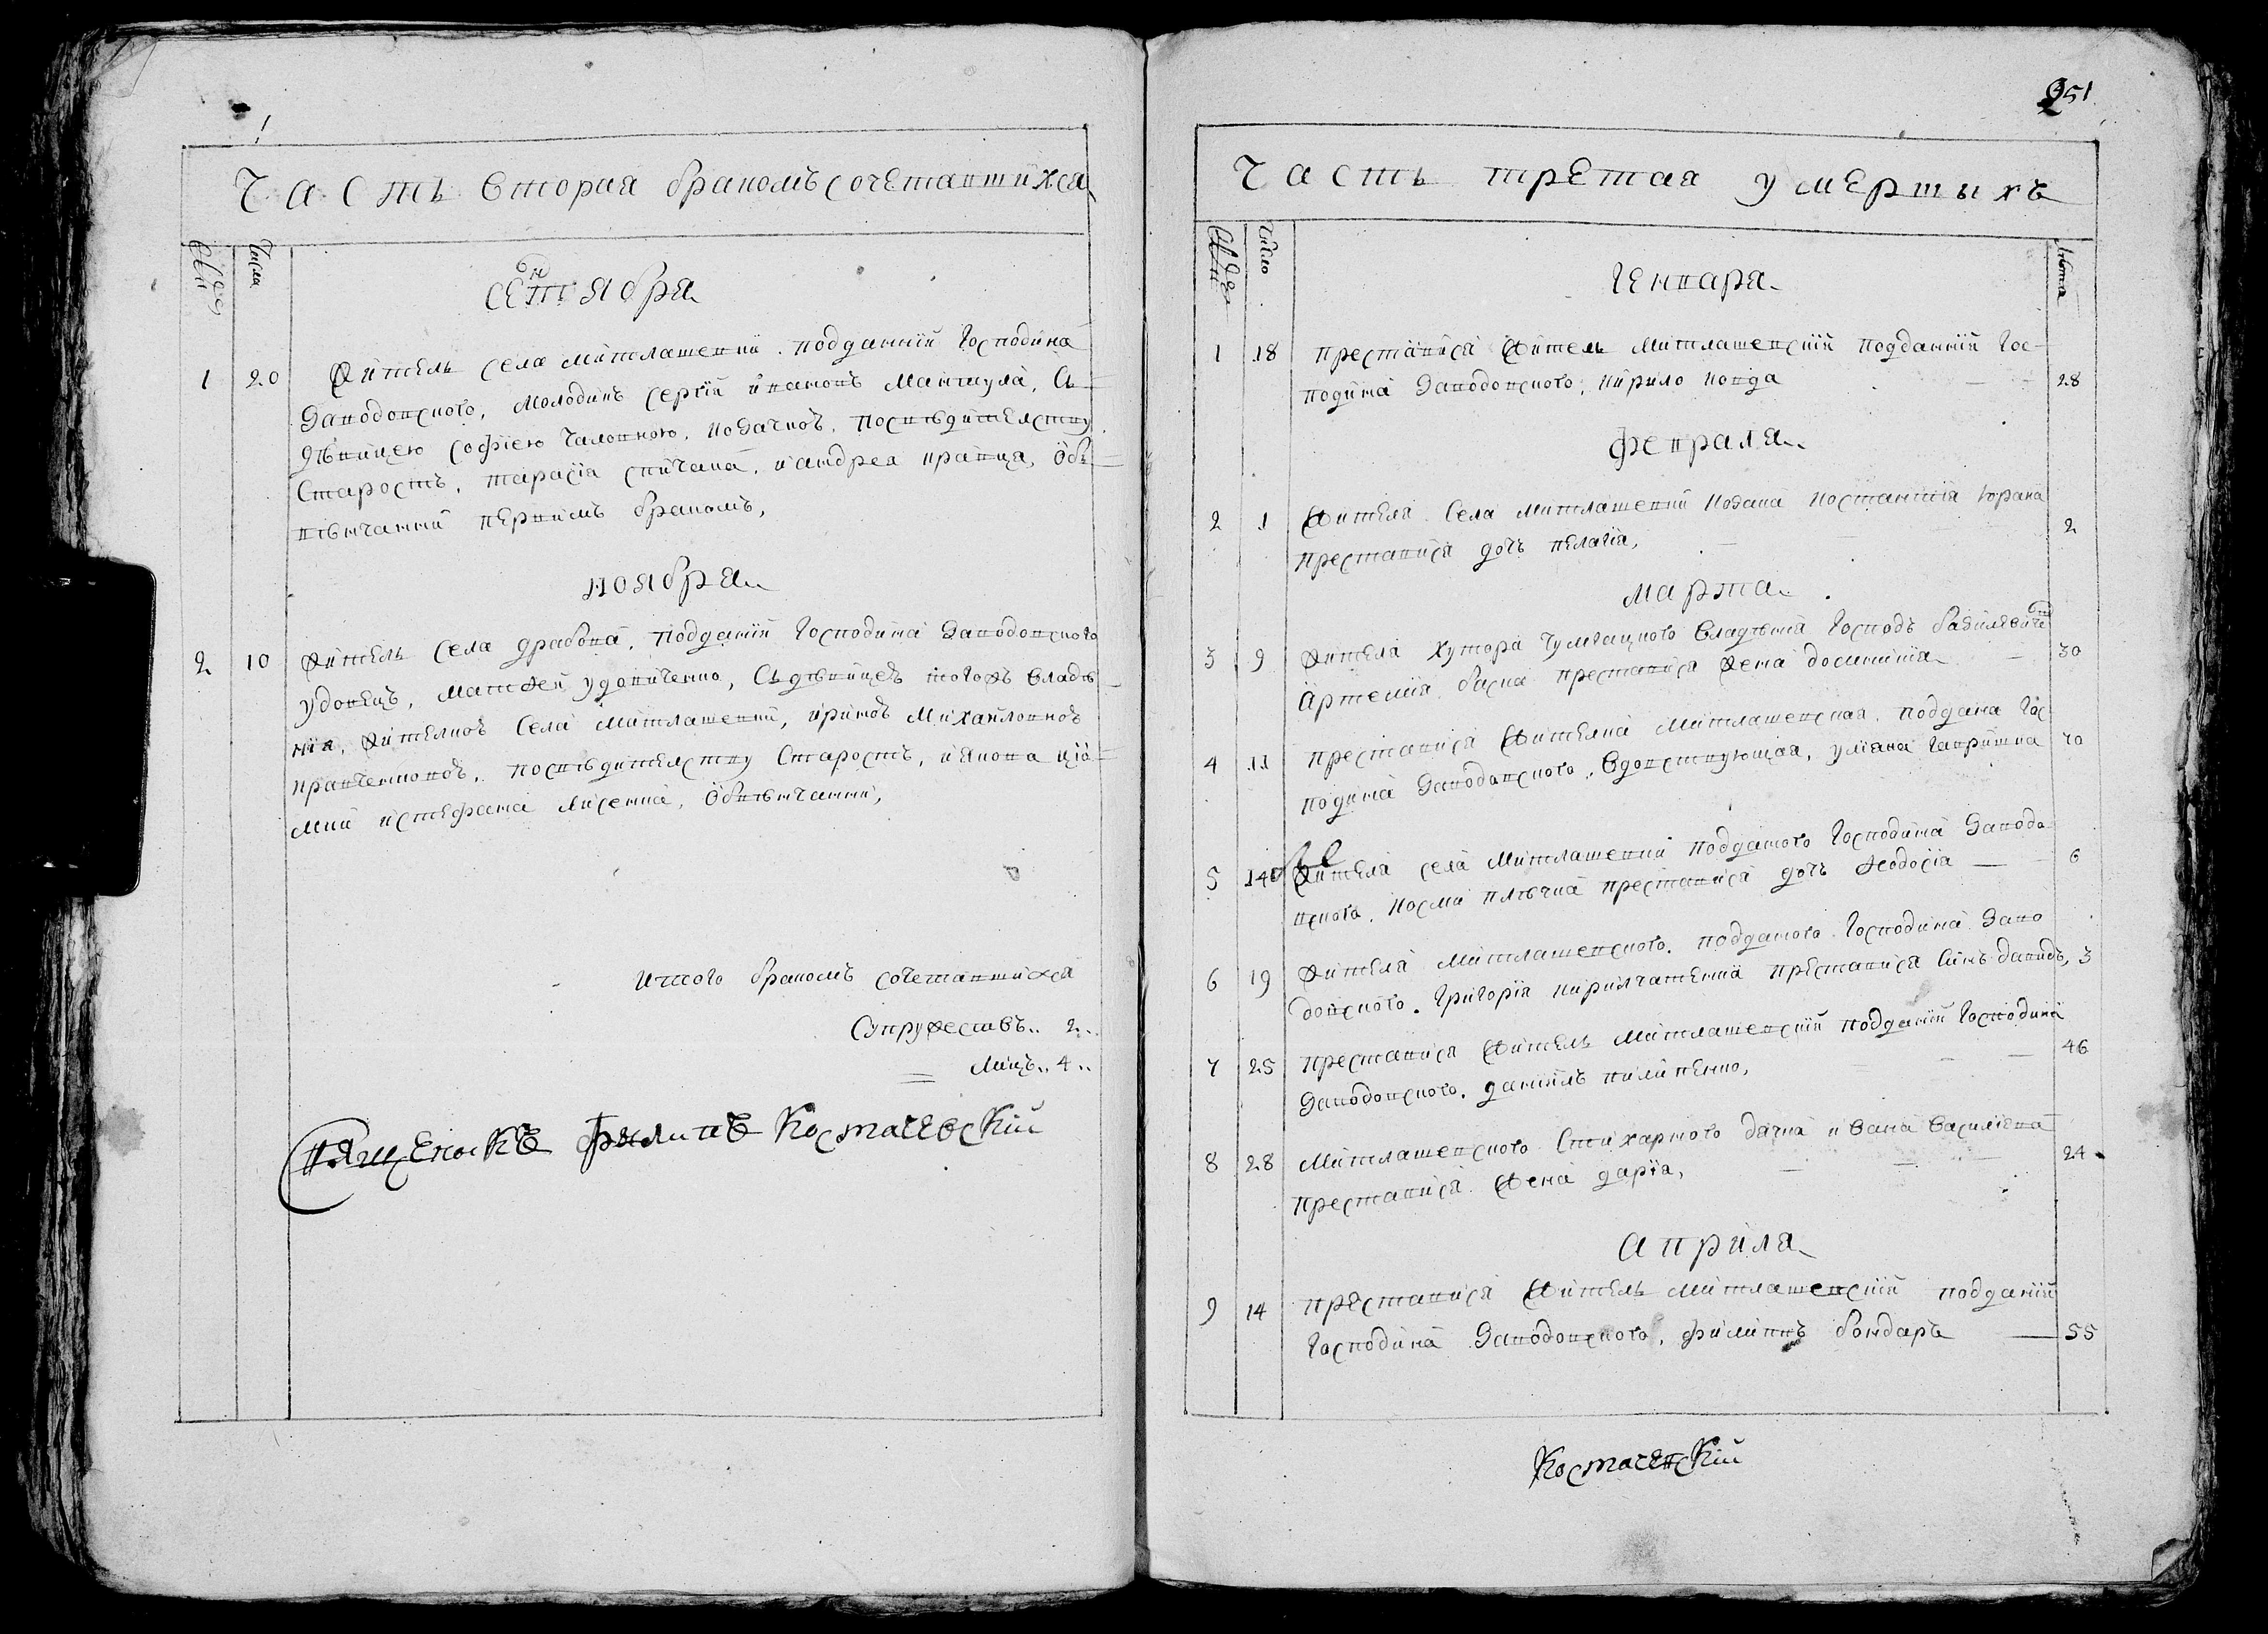 Часть вторая бракомъ сочетавшихся
Числа
Сентября
1 20 Житель села Митлашевки подданній Господина
Заводовского, молодикъ сергій Ивановъ Манжула, Съ
дѣвицею софіею чаловною, козачкою, посвѣдителству
Старостъ, тарасія спичака, и андрея кравца, Обѣ
вѣнчанни первимъ бракомъ,
ноября
2 10 житель села драбова, подданій Господина Заводовского
удовецъ, матѳей удовиченко, Съ дѣвицею тогожъ владѣ
нія, жителкою села Митлашевки, ириною Михайловною
кравченковою, посвѣдителству Старостъ, иякова
и стефана лисенка, Обвѣнчанни,
итого бракомъ сочетавшихся
Супружествъ.. 2..
Лицъ.. 4..
Священникъ филипъ Костачевскій
251
Часть третая умершыхъ
Число Лѣта
Генвара
1 18 преставися житель митлашевскій подданній Гос-
подина Заводовского, кирило ковда 28
февраля
2 1 жителя Села митлашевки козака константія юрана
преставися дочь пелагія, 2
марта
3 9 жителя хутора чумгацкого владѣнія Господъ базилевичей
Артемія баска преставися жена домникія 30
4 11 преставися жителка Митлашевская, поддана Гос
подина Заводовского, вдовствующая, уліяна гавришка 70
5 14 жителя села митлашевки подданого Господина Заводо
вского, косми плѣчка преставися дочь ѳеодосія 6
6 19 жителя митлашевского, подданого Господина Заво
довского, григорія кирилчатенка преставися Синъ давидъ, 3
7 25 преставися житель митлашевскій подданій Господина
Заводовского, даніилъ пилипенко, 46
8 28 митлашевского Стихарного дячка ивана василіева
преставися жена дарія, 24
априля
9 14 преставися житель митлашевскій подданій
Господина Заводовского, филиппъ бондаръ 55
Костачевскій